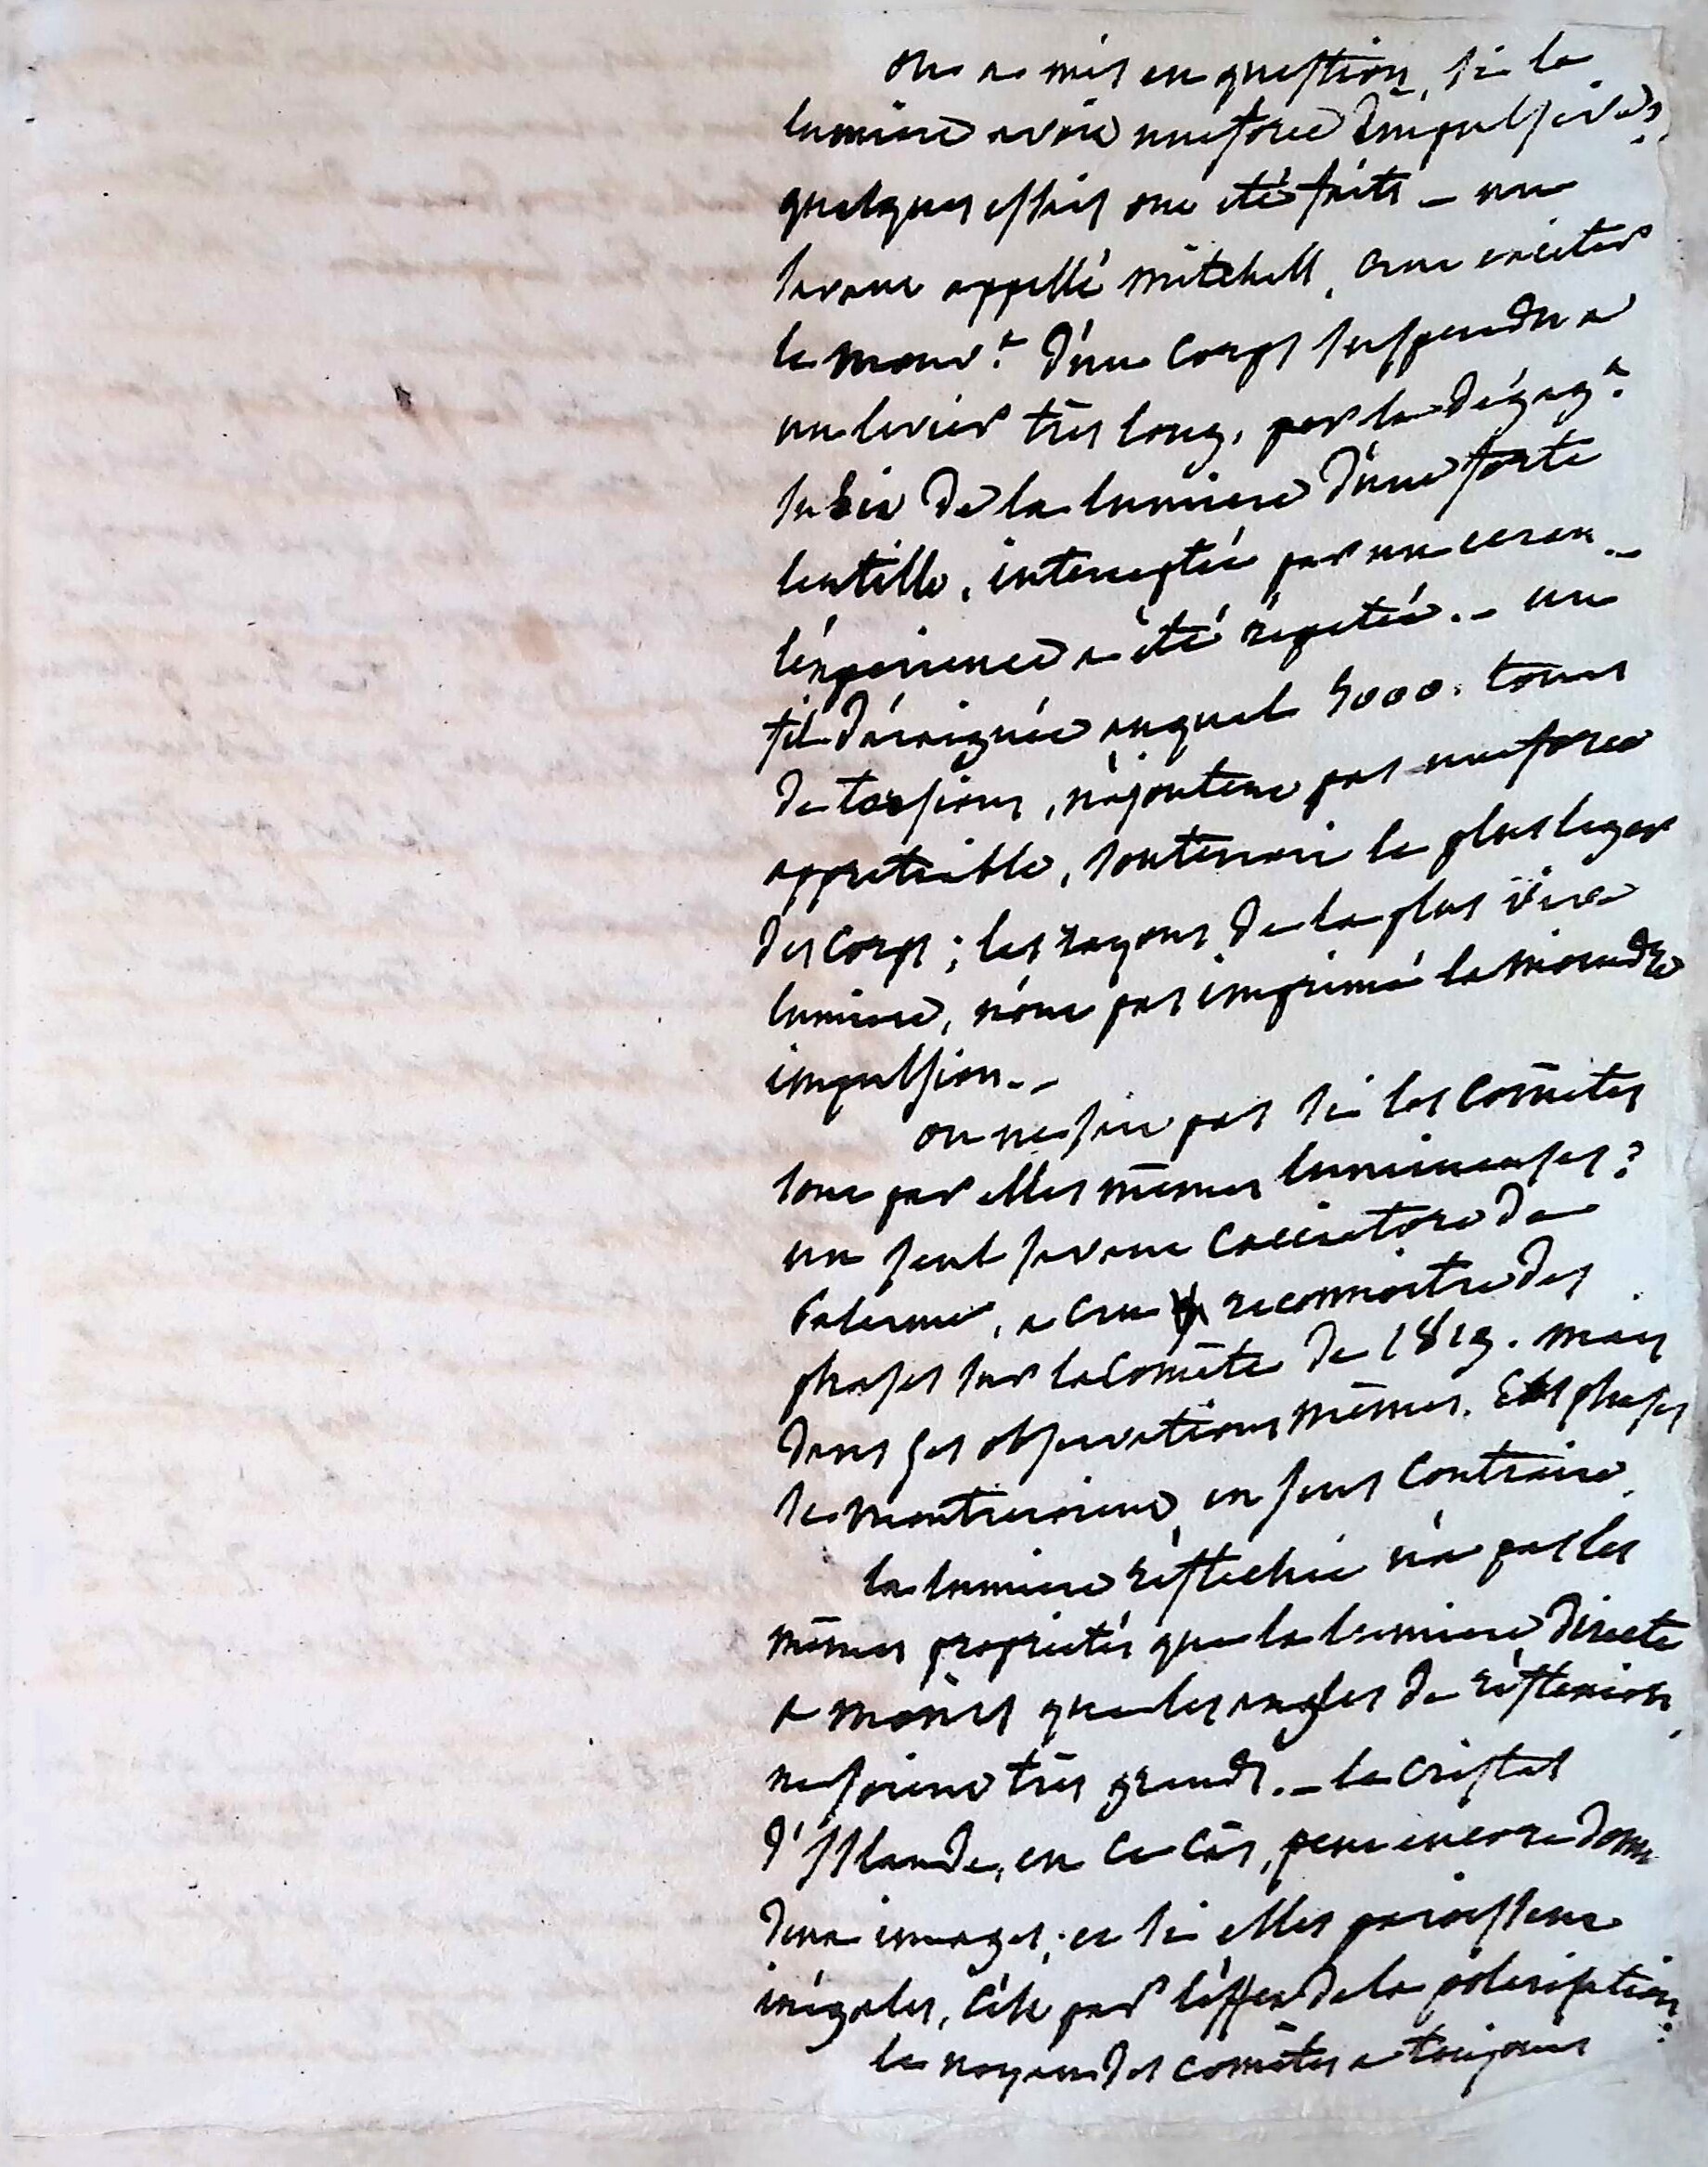 on a mis en question, si la
lumiere avoit une force d'impulsion?
quelques essais ont été faits – un
savant appellé mitchell, crut exciter
le mouv.t d'un corps suspendu a
un levier très long, par le dégag.t
subit de la lumiere d'une forte
lentille, interceptée par un ecran –
l'éxperience a été répetée. – un
fil d'áraignée auquel 5000. tours
de torsions, n'ajoutent pas une force
appretiable, soutenoit le plus leger
des corps; les rayons de la plus vive
lumiere, n'ont pas imprimé la moindre
impulsion. –
on ne sait pas si les Comètes
sont par elles mêmes lumineuses?
un seul savant Cacciatore de
Palerme, a cru reconnoitre des
phases sur la Comète de 1819. mais
dans ses observations mêmes. Ces phases
se montreroient en sens Contraire.
la lumiere réflechie n'a pas les
mêmes proprietés que la lumiere directe
a moins que les angles de réflexion
ne soient très grands. – le Cristal
d'Islande, en ce cas, peut encore donn
deux images; et si elles paroissent
inégales, c'est par l'effet de la pôlarisation.
le noyau des comètes a toujours